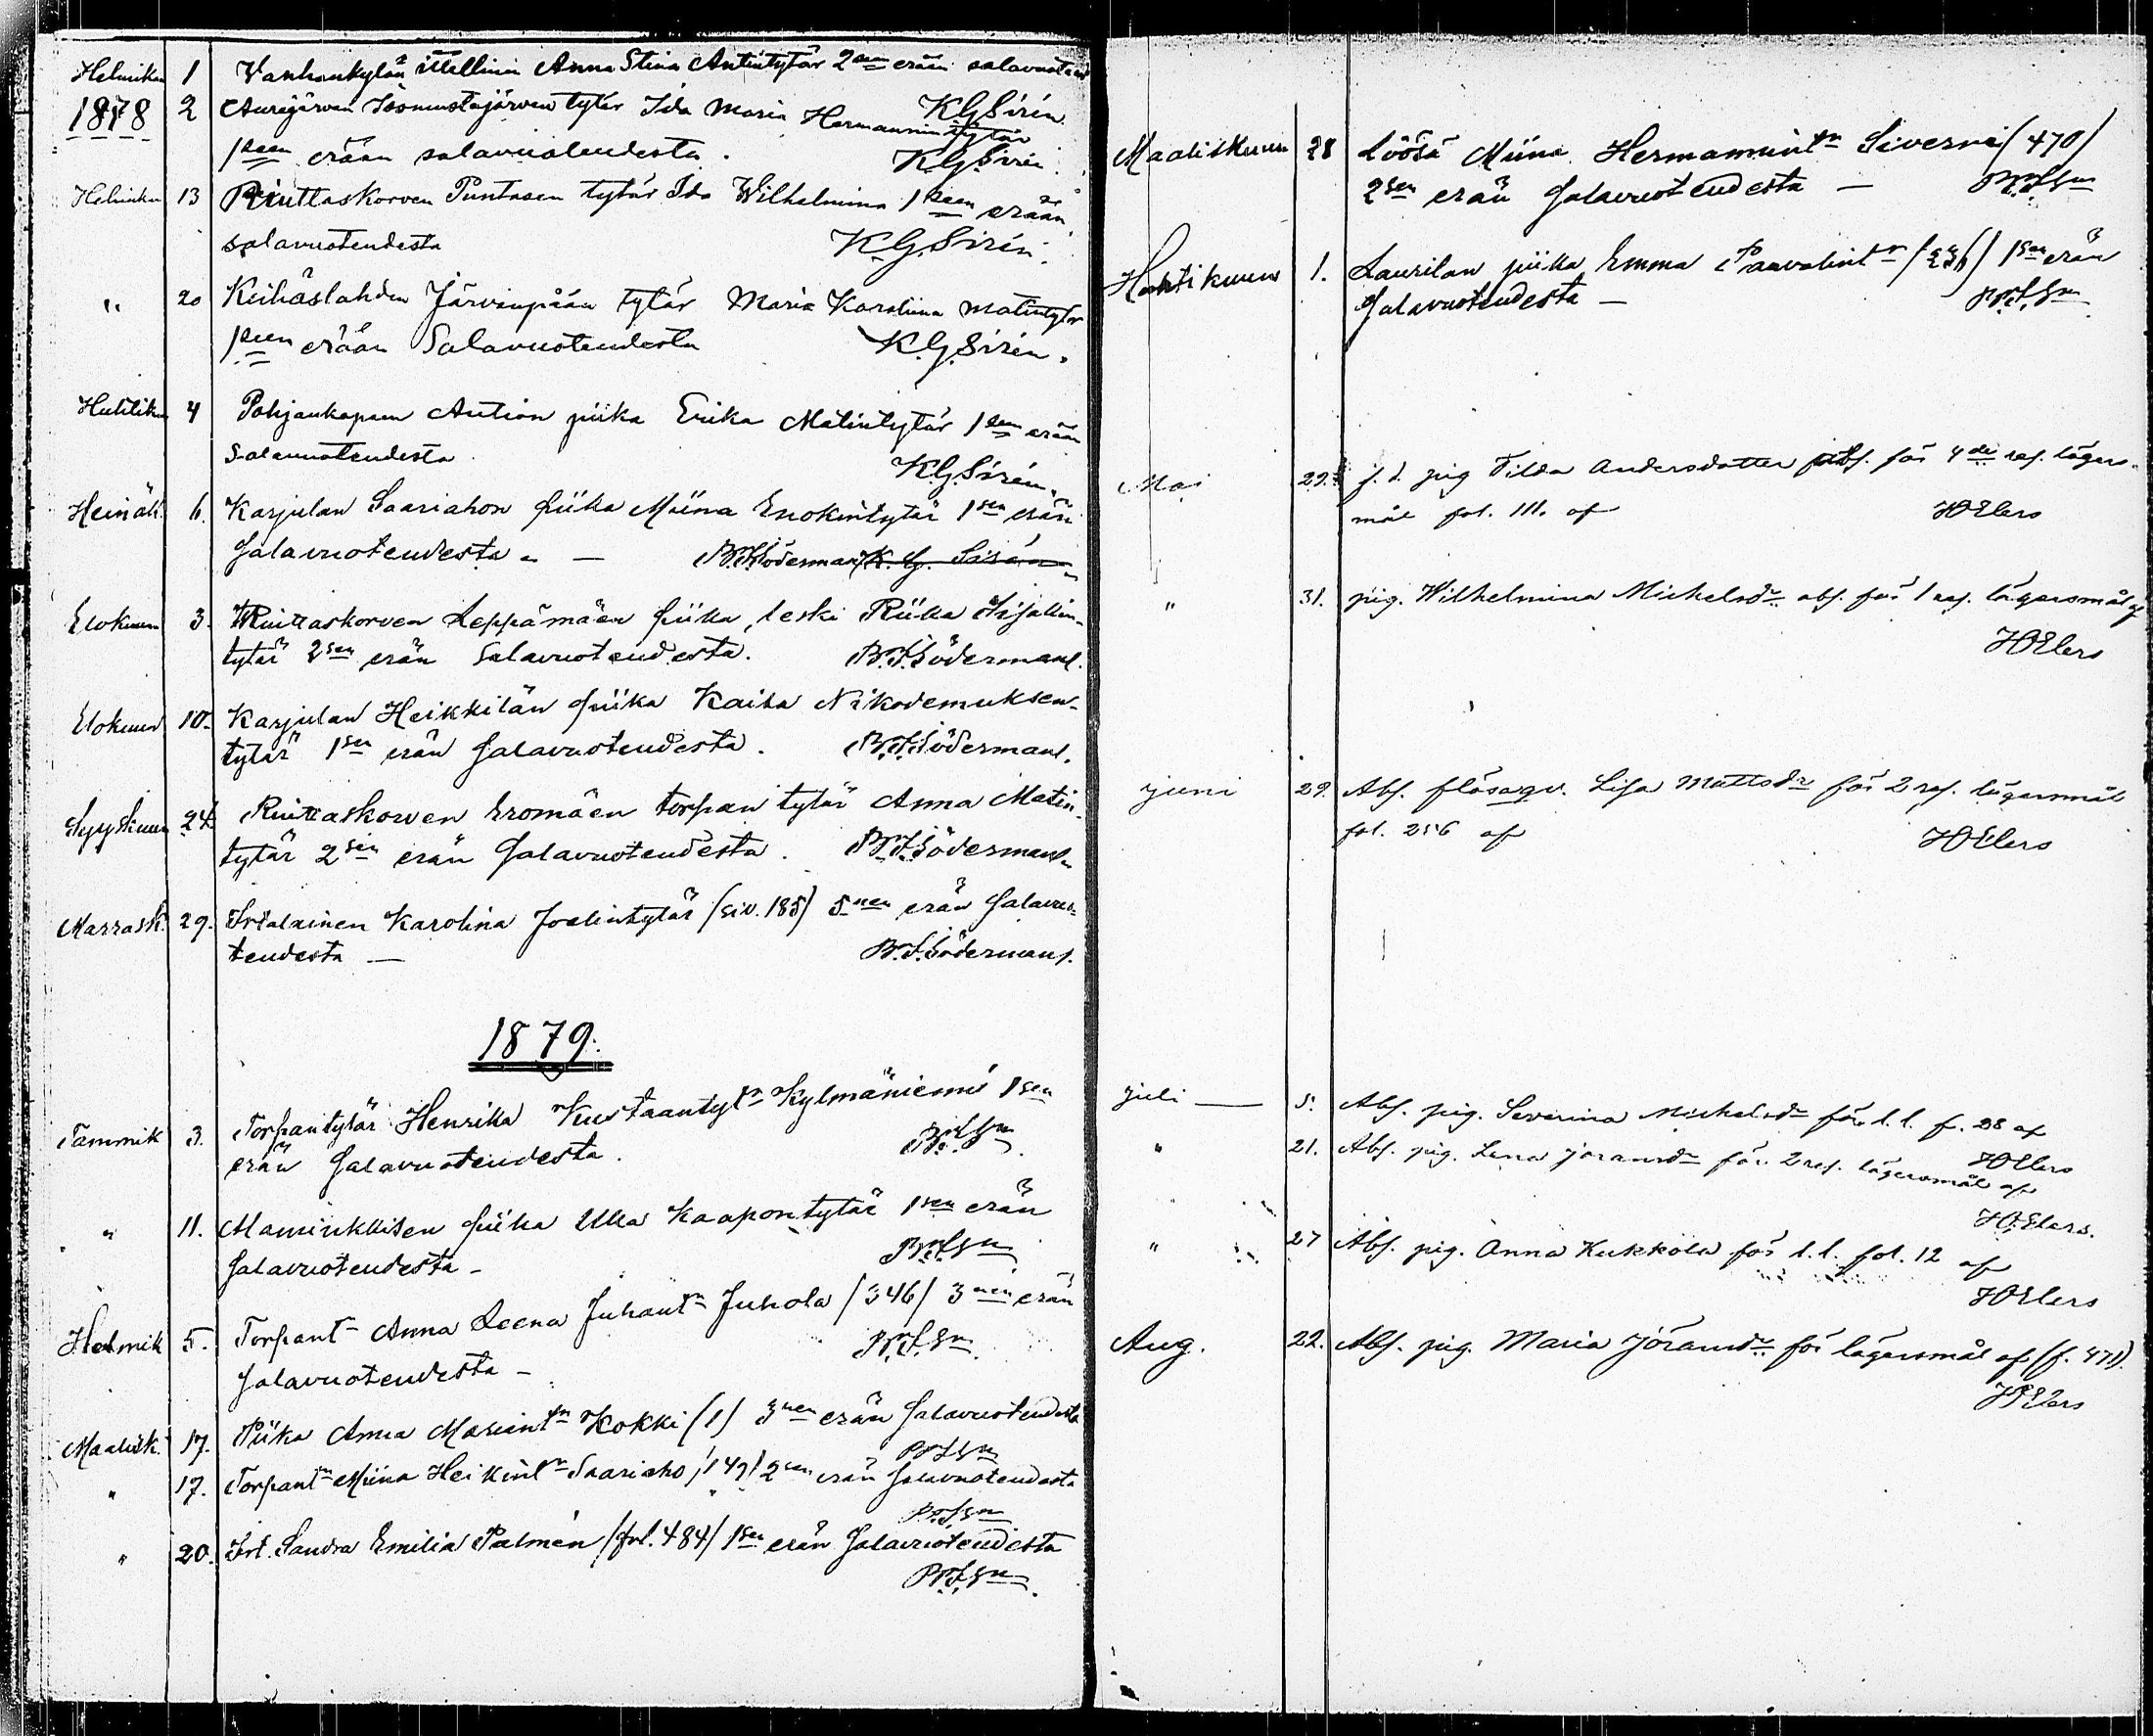 Helmikuu 1 Vanhankylän itsellinen Anna Stina Antintytär 2sen erän salavuoteud
1878 2 Aurejärven Isonmustajärven tytär Ida Maria Hermannintytär K.G.Sirén
1seen erään salavuoteudesta. K.G.Sirén.
Helmikuu 13 Riuttaskorven Puntasen tytär Ida Wilhelmina 1seen erään
salavuoteudesta K.G.Sirén.
" 20 Keihäslahden Järvenpään tytär Maria Karoliina Matintytär
1seen erään Salavuoteudesta K.G.Sirén.
Huhtiku 4 Pohjankapeen Aution piika Erika Matintytär 1sen erään
salavuoteudesta K.G.Sirén.
Heinäk. 6. Karjulan Saariahon piika Miina Enokintytär 1sen erän
salavuoteudesta. — B.F.Söderman K. G. Sirén
Elokuun 3. Riuttaskorven Leppämäen piika, leski Riika
tytär 2sen erän Salavuoteudesta. B.F.Söderman.
Elokuun 10. Karjulan Heikkilän piika Kaisa Nikodemuksen-
tytär 1sen erän salavuoteudesta. B.F.Söderman.
Syyskuun 24. Riuttaskorven Eromäen torpan tytär Anna Matin-
tytär 2sen erän salavuoteudesta. B.F.Söderman.
Marrask. 29. Irtolainen Karolina Joelintytär (siv. 185) 5nen erän salavuo-
teudesta — B.F.Söderman.
1879.
Tammik 3. Torpantytär Henrika Kustaantytr Kylmäniemi 1sen
erän salavuoteudesta. B.F.Sn.
" 11. Maminkkisen piika Ulla Kaapontytär 1sen erän
salavuoteudesta — B.F.Sn
Helmik 5. Torpant Anna Leena Juhantr Juhola (346) 3nen erän
salavuoteudesta — B.F.Sn.
Maalisk. 17. Piika Anna Kokki (1) 3nen erän salavuoteudesta
B.F.Sn
" 17. Torpantr Miina Heikintr Saariaho (149) 2sen erän salavuoteudesta
B.F.Sn
" 20. Irt. Sandra Emilia Palmén (fol. 484) 1sen erän salavuoteudesta
B.F.Sn.
Maaliskuun 28 Löösä Miina Hermannintr Siverni (470)
2sen erän salavuoteudesta — B.F.Sn
Huhtikuun 1. Laurilan piika Emma Paavalintr (236) 1sen erän
salavuoteudesta — B.F.Sn
Maj 29. f. d. pig Tilda Andersdotter abs. för 4de res. lägers-
mål fol. 111. af HOElers
" 31. pig. Wilhelmina Michelsdr abs. för 1 res. lägersmål af
HOElers
juni 29. Abs. Lisa Mattsdr för 2 res. lägersmål
fol. 256 af HOElers
juli — 5. Abs. pig. Severina Michelsdr för l. l. f. 28 af
HOElers
" 21. Abs. pig. Lena Göransdr för 2 res. lägersmål af
HOElers.
" 27 Abs. pig. Anna Kukkola för l. l. fol. 12 af
HOElers
Aug. 22. Abs. pig. Maria Göransdr för lägersmål af (f. 471).
HOElers